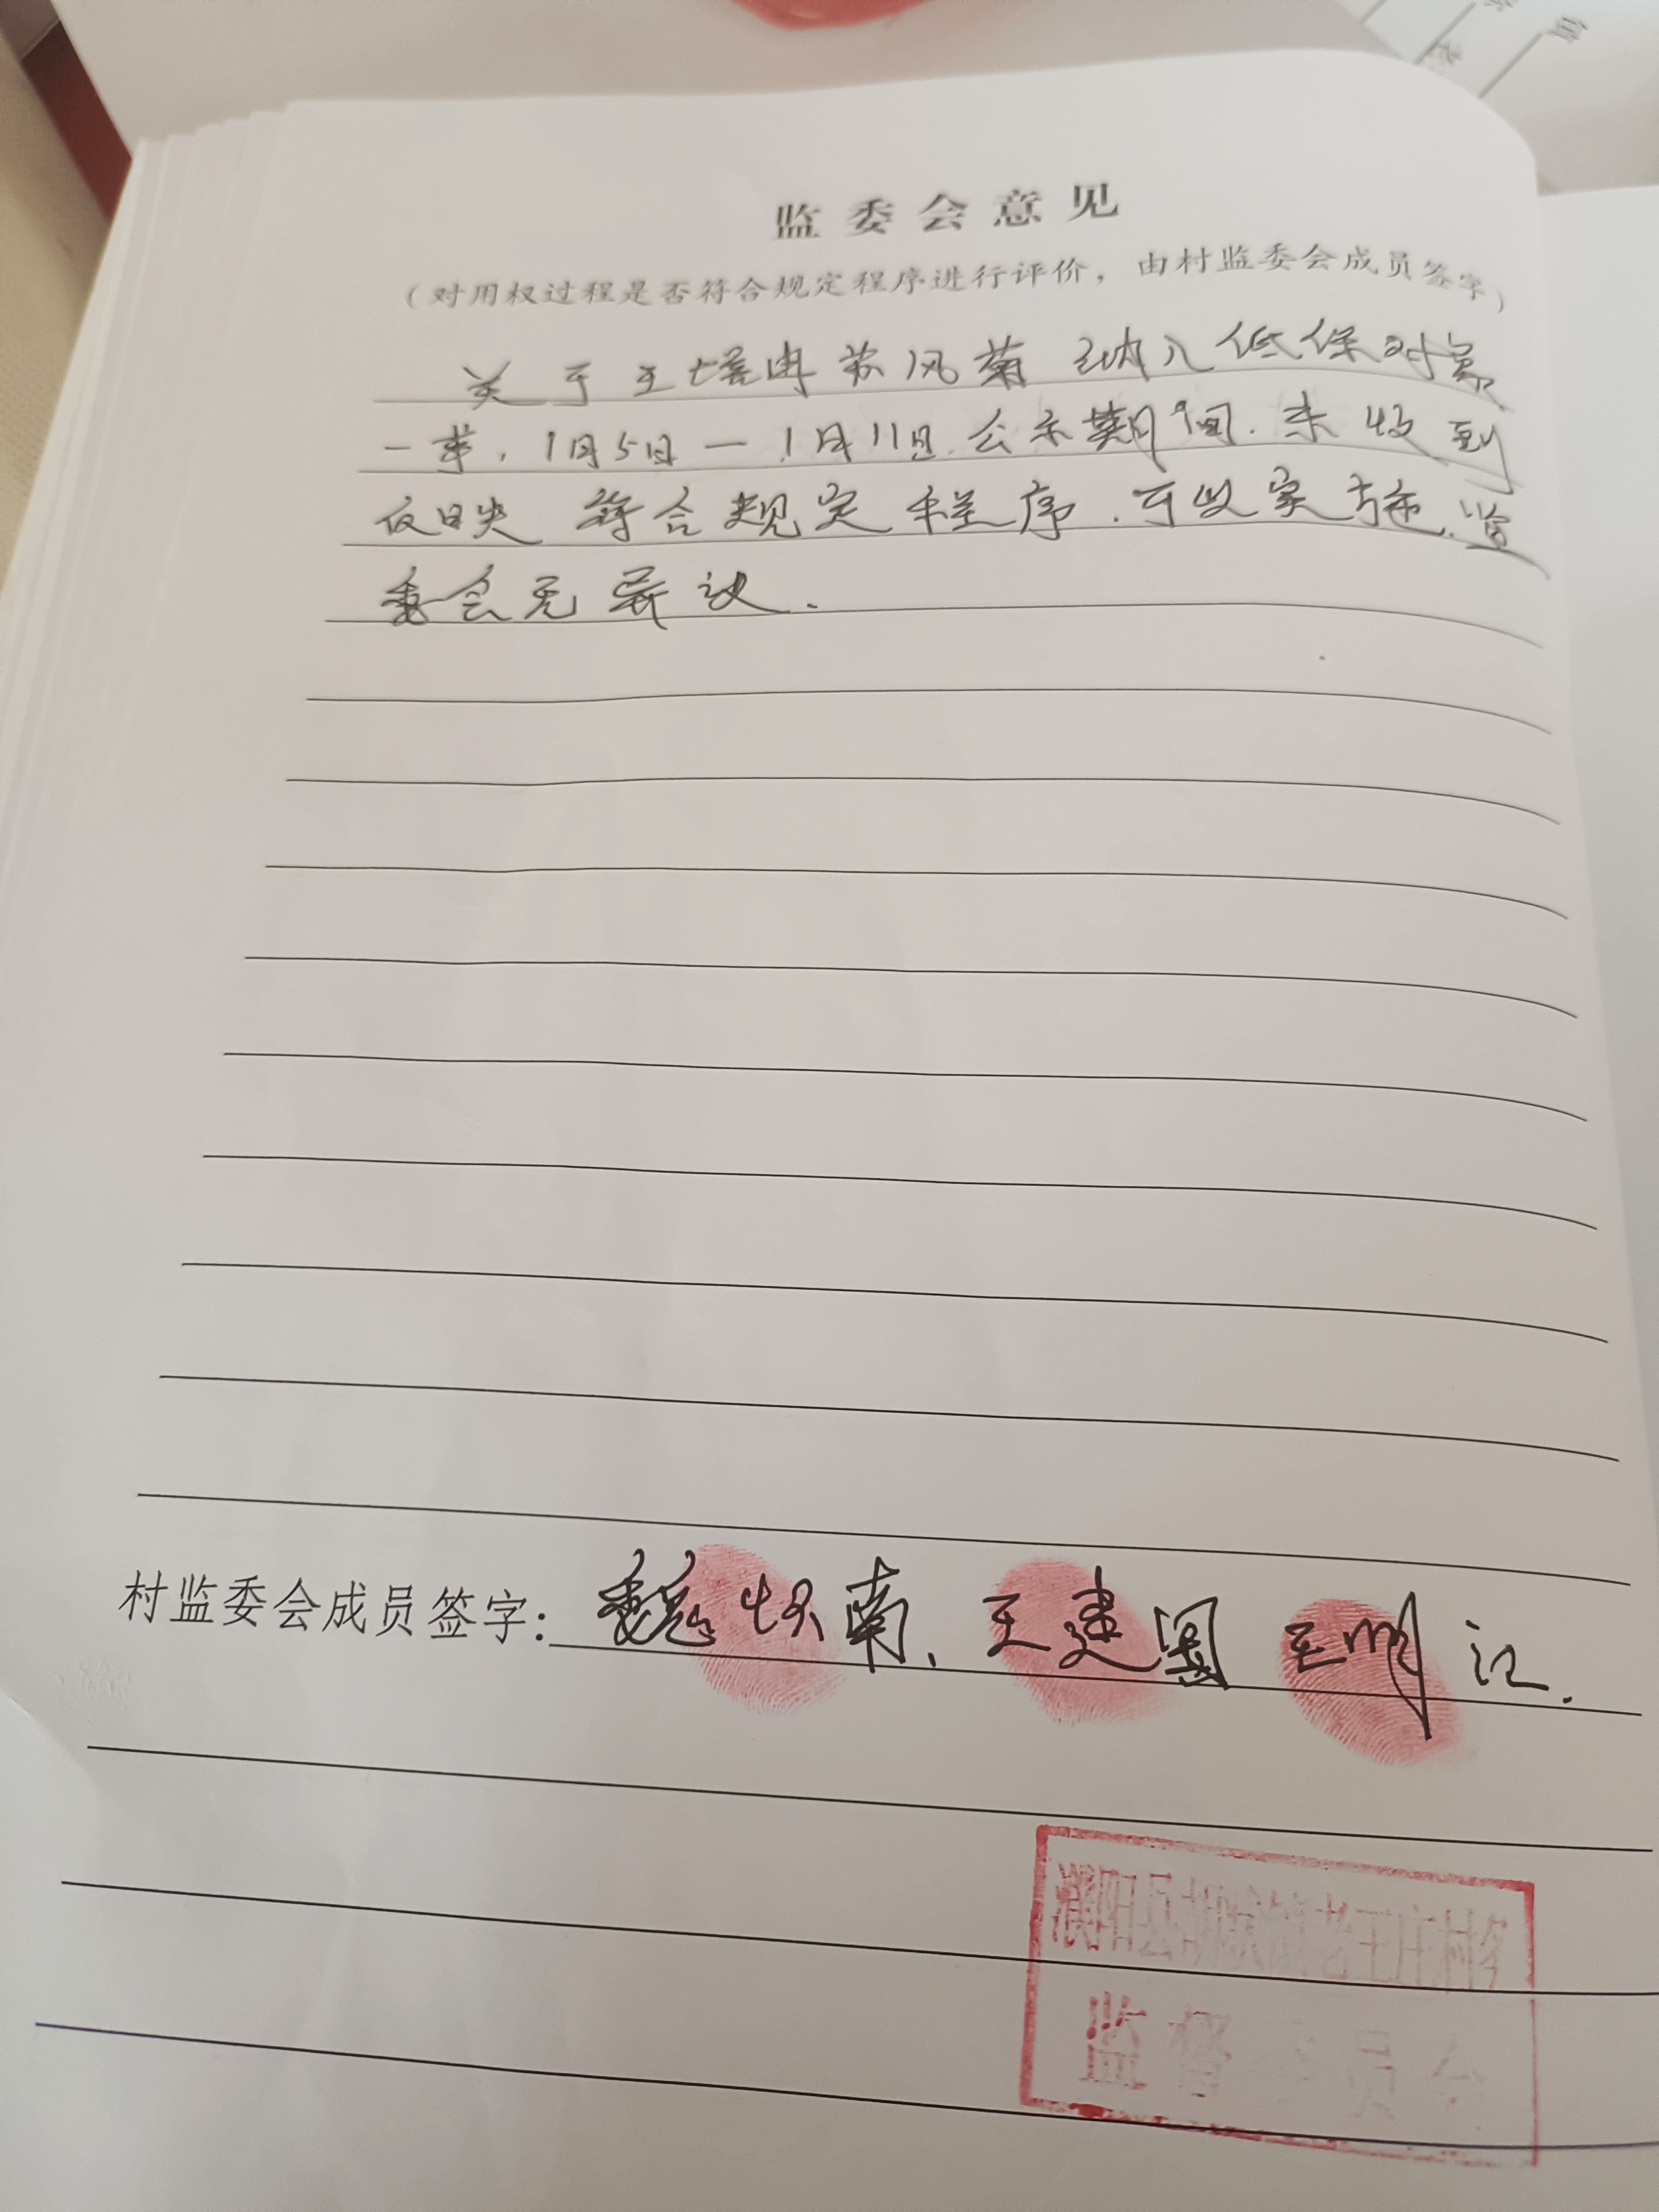 监委会意见
(对用权过程是否符合规定程序进行评价，由村监委会成员签字)
关于王 苏风菊纳入低保对象
一事，1月5日—1月11日公示期间．未收到
反映 符合规定程序．可以实施．监
委会无异议．
村监委会成员签字: 魏 南、王建国 王明江．
监督委员会